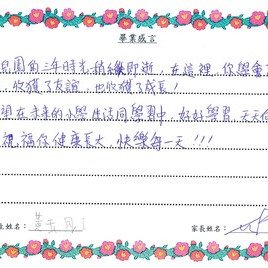 畢業感言
兒園的三年時光稍縱即逝，在這裡，你學會
，收獲了友誼，也收獲了成長！
望在未來的小學生活同學習中，好好學習，天天
祝福你健康長大，快樂每一天！！！
生姓名：黃
家長姓名：